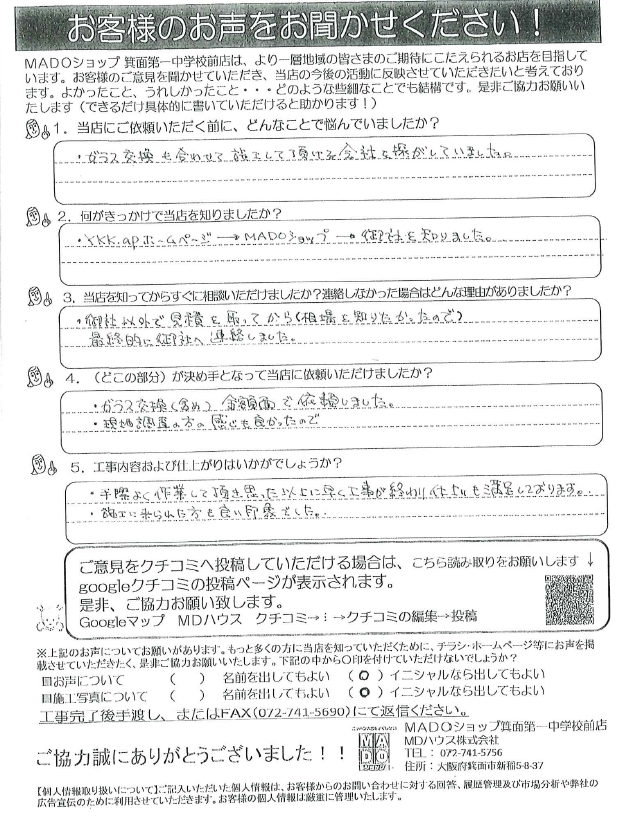 お客様のお声をお聞かせください！
MADOショップ 箕面第一中学校前店は、より一層地域の皆さまのご期待にこたえられるお店を目指して
います。お客様のご意見を聞かせていただき、当店の今後の活動に反映させていただきたいと考えており
ます。よかったこと、うれしかったこと・・・どのような些細なことでも結構です。是非ご協力お願いい
たします（できるだけ具体的に書いていただけると助かります！）
1．当店にご依頼いただく前に、どんなことで悩んでいましたか？
・ガラス交換も合わせて施工して頂ける会社を探がしていました。
2．何がきっかけで当店を知りましたか？
・YKK.apホームページ→MADOショップ→御社を知りました。
3．当店を知ってからすぐに相談いただけましたか？連絡しなかった場合はどんな理由がありましたか？
・御社以外で見積を取ってから(相場を知りたかったので)
最終的に御社へ連絡しました。
4．（どこの部分）が決め手となって当店に依頼いただけましたか？
・ガラス交換含めて金額面で依頼しました。
・現地調査の方の感じも良かったので
5．工事内容および仕上がりはいかがでしょうか？
・手際よく作業して頂き思った以上に早く工事が終わり仕上りも満足しております。
・施工に来られた方も良い印象でした。
ご意見をクチコミへ投稿していただける場合は、こちら読み取りをお願いします ↓
googleクチコミの投稿ページが表示されます。
是非、ご協力お願い致します。
Googleマップ MDハウス クチコミ→⋮→クチコミの編集→投稿
※上記のお声についてお願いがあります。もっと多くの方に当店を知っていただくために、チラシ・ホームページ等にお声を掲
載させていただきたく、是非ご協力お願いいたします。下記の中から○印を付けていただけないでしょうか？
■お声について （ ） 名前を出してもよい （○）イニシャルなら出してもよい
■施工写真について （ ） 名前を出してもよい （○）イニシャルなら出してもよい
工事完了後手渡し、またはFAX(072-741-5690)にて返信ください。
ご協力誠にありがとうございました！！
MADO
MADOショップ箕面第一中学校前店
MDハウス株式会社
TEL： 072-741-5756
住所：大阪府箕面市新稲5-8-37
【個人情報取り扱いについて】ご記入いただいた個人情報は、お客様からのお問い合わせに対する回答、履歴管理及び市場分析や弊社の
広告宣伝のために利用させていただきます。お客様の個人情報は厳重に管理いたします。